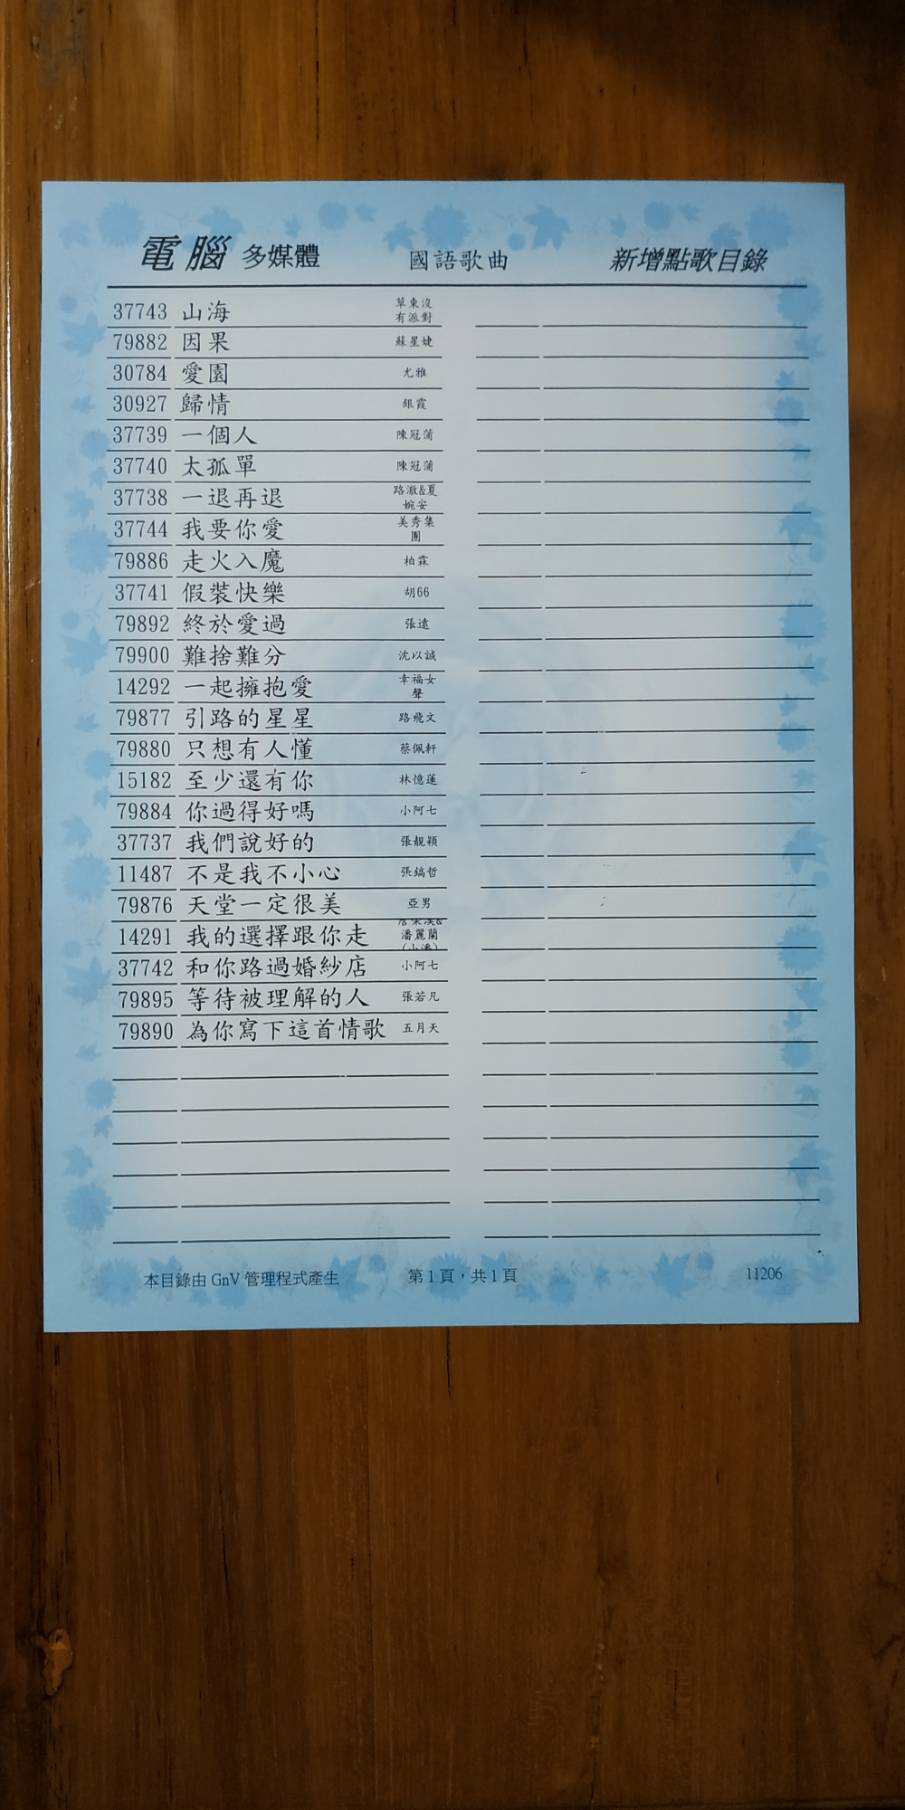 電腦 多媒體 國語歌曲 新增點歌目錄
37743 山海 草東沒有派對
79882 因果 蘇星婕
30784 愛園 尤雅
30927 歸情 銀霞
37739 一個人 陳冠蒲
37740 太孤單 陳冠蒲
37738 一退再退 路滰&夏婉安
37744 我要你愛 美秀集團
79886 走火入魔 柏霖
37741 假裝快樂 胡66
79892 終於愛過 張遠
79900 難捨難分 沈以誠
14292 一起擁抱愛 幸福女聲
79877 引路的星星 路飛文
79880 只想有人懂 蔡佩軒
15182 至少還有你 林憶蓮
79884 你過得好嗎 小阿七
37737 我們說好的 張靚穎
11487 不是我不小心 張鎬哲
79876 天堂一定很美 亞男
14291 我的選擇跟你走 潘麗蘭
37742 和你路過婚紗店 小阿七
79895 等待被理解的人 張若凡
79890 為你寫下這首情歌 五月天
本目錄由 GnV 管理程式產生 第1頁，共1頁 11206